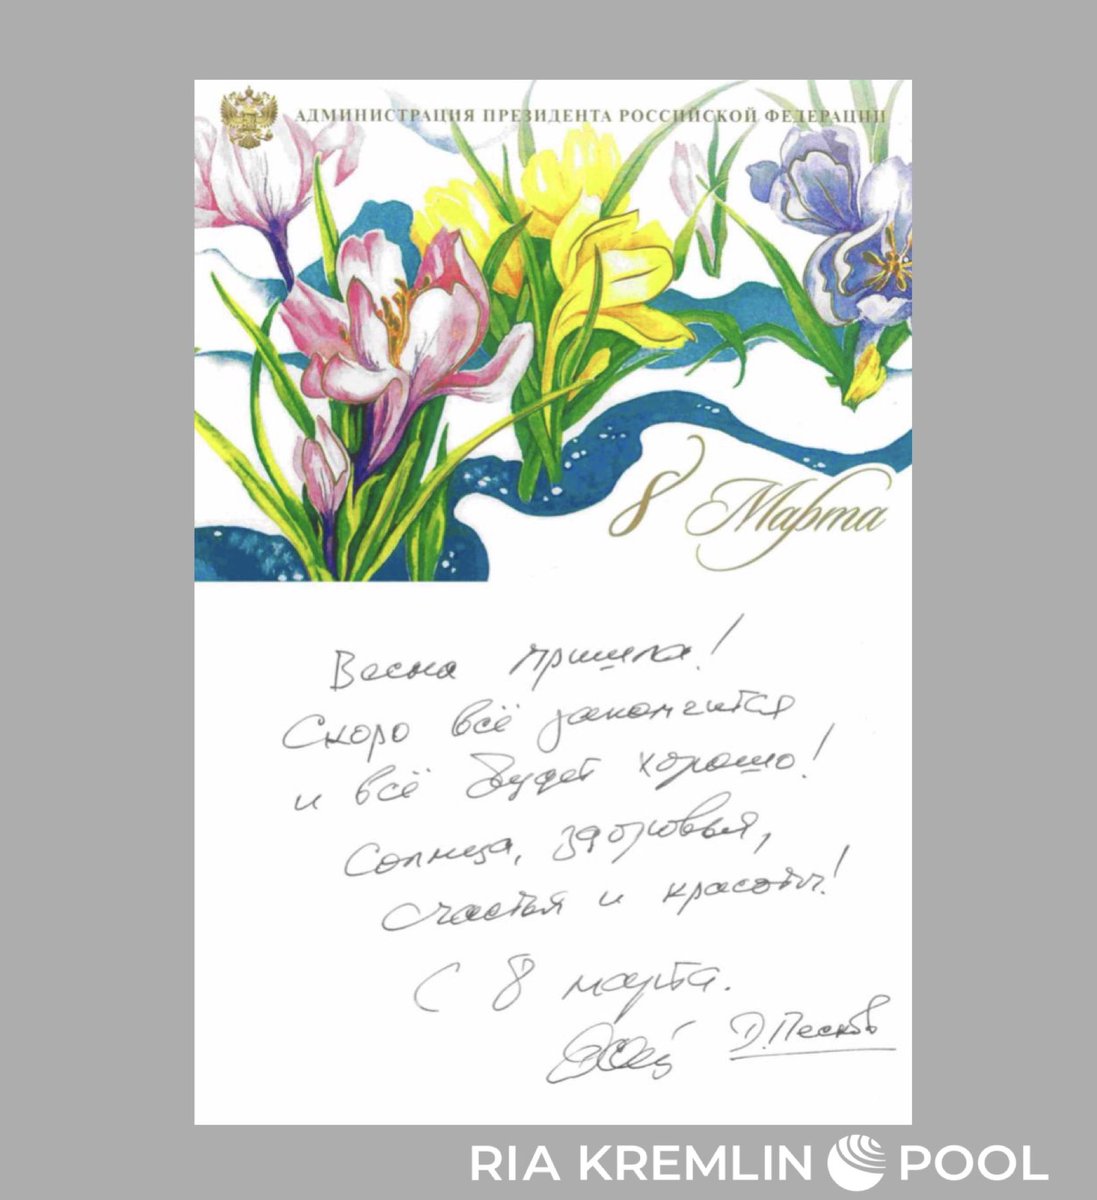 АДМИНИСТРАЦИЯ ПРЕЗИДЕНТА РОССИЙСКОЙ ФЕДЕРАЦИИ
8 Марта
Весна пришла!
Скоро всё закончится
и всё будет хорошо!
Солнца, здоровья,
счастья и красоты!
С 8 марта.
Д. Песков
RIA KREMLIN POOL